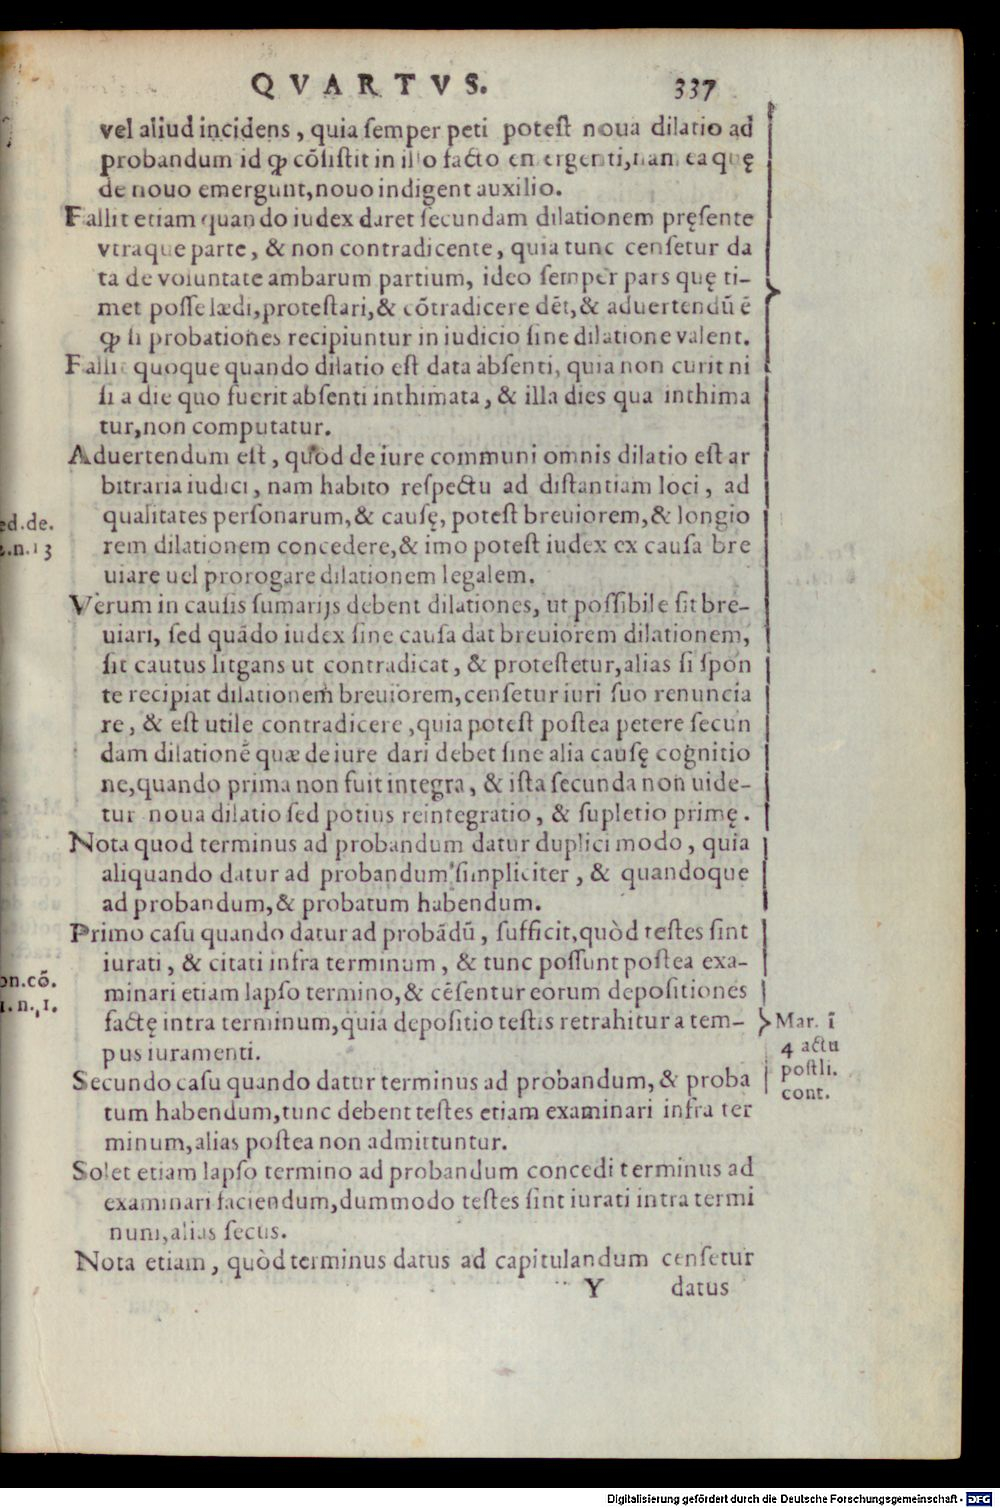 QVARTVS. 337
vel aliud incidens, quia semper peti potest noua dilatio ad
probandum id ꝙ cõsistit in illo facto emergenti, nam ea quę
de nouo emergunt, nouo indigent auxilio.
Fallit etiam quando iudex daret secundam dilationem pręsente
vtraque parte, & non contradicente, quia tunc censetur da
ta de voluntate ambarum partium, ideo semper pars quę ti-
met posse lædi, protestari, & cõtradicere dẽt, & aduertendũ ẽ
ꝙ si probationes recipiuntur in iudicio sine dilatione valent.
Fallit quoque quando dilatio est data absenti, quia non curit ni
si a die quo fuerit absenti inthimata, & illa dies qua inthima
tur, non computatur.
Aduertendum est, quòd de iure communi omnis dilatio est ar
bitraria iudici, nam habito respectu ad distantiam loci, ad
qualitates personarum, & causę, potest breuiorem, & longio
rem dilationem concedere, & imo potest iudex ex causa bre
uiare uel prorogare dilationem legalem.
ed.de.
.n.13
Verum in causis sumarijs debent dilationes, ut possibile sit bre-
uiari, sed quãdo iudex sine causa dat breuiorem dilationem,
sit cautus litgans ut contradicat, & protestetur, alias si spon
te recipiat dilationem breuiorem, censetur iuri suo renuncia
re, & est utile contradicere, quia potest postea petere secun
dam dilationẽ quæ de iure dari debet sine alia causę cognitio
ne, quando prima non fuit integra, & ista secunda non uide-
tur noua dilatio sed potius reintegratio, & supletio primę.
Nota quod terminus ad probandum datur duplici modo, quia
aliquando datur ad probandum simpliciter, & quandoque
ad probandum, & probatum habendum.
Primo casu quando datur ad probãdũ, sufficit, quòd testes sint
iurati, & citati infra terminum, & tunc possunt postea exa-
minari etiam lapso termino, & cẽsentur eorum depositiones
factę intra terminum, quia depositio testis retrahitur a tem-
pus iuramenti.
on.cõ.
1.n.1.
Mar. ĩ
4 actu
postli.
cont.
Secundo casu quando datur terminus ad probandum, & proba
tum habendum, tunc debent testes etiam examinari infra ter
minum, alias postea non admittuntur.
Solet etiam lapso termino ad probandum concedi terminus ad
examinari faciendum, dummodo testes sint iurati intra termi
num, alias secus.
Nota etiam, quòd terminus datus ad capitulandum censetur
Y datus
Digitalisierung gefördert durch die Deutsche Forschungsgemeinschaft - DFG